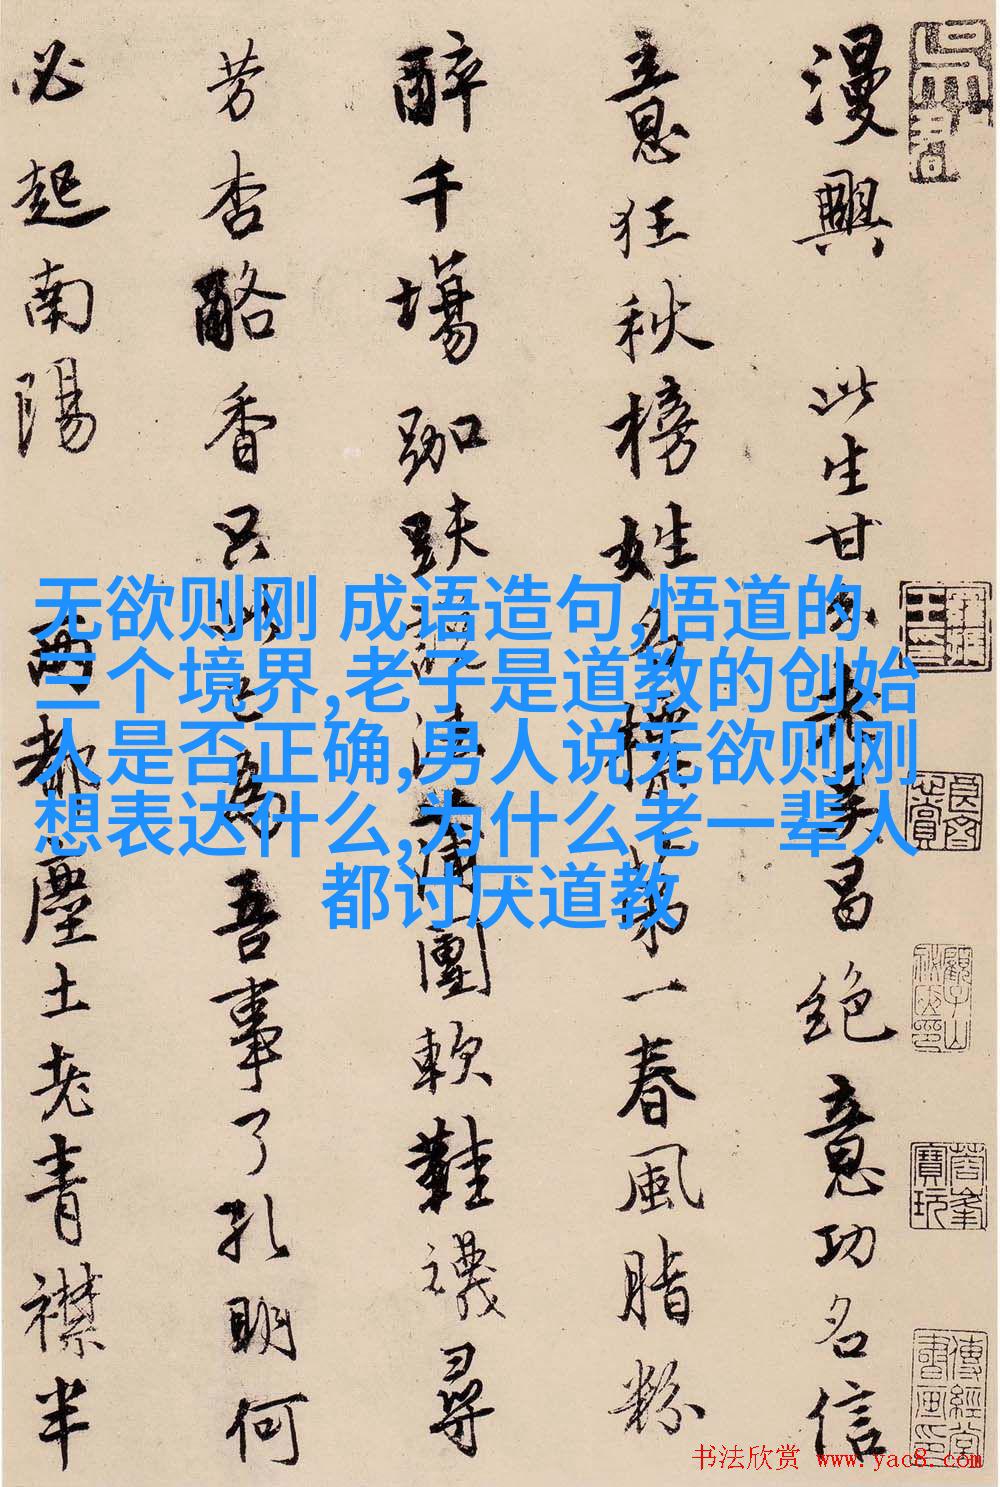 漫興 此生甘分老吳昌絕意功名信
意狂秋榜姓名第一春風脂粉
醉千塲跏趺說法蒲團軟鞋襪尋
芳杏酪香只此已為吾事了孔明何
必起南陽 兩都塵土老青襟半
无欲则刚 成语造句,悟道的
三个境界,老子是道教的创始
人是否正确,男人说无欲则刚
想表达什么,为什么老一辈人
都讨厌道教
书法欣赏 www.yac8.com